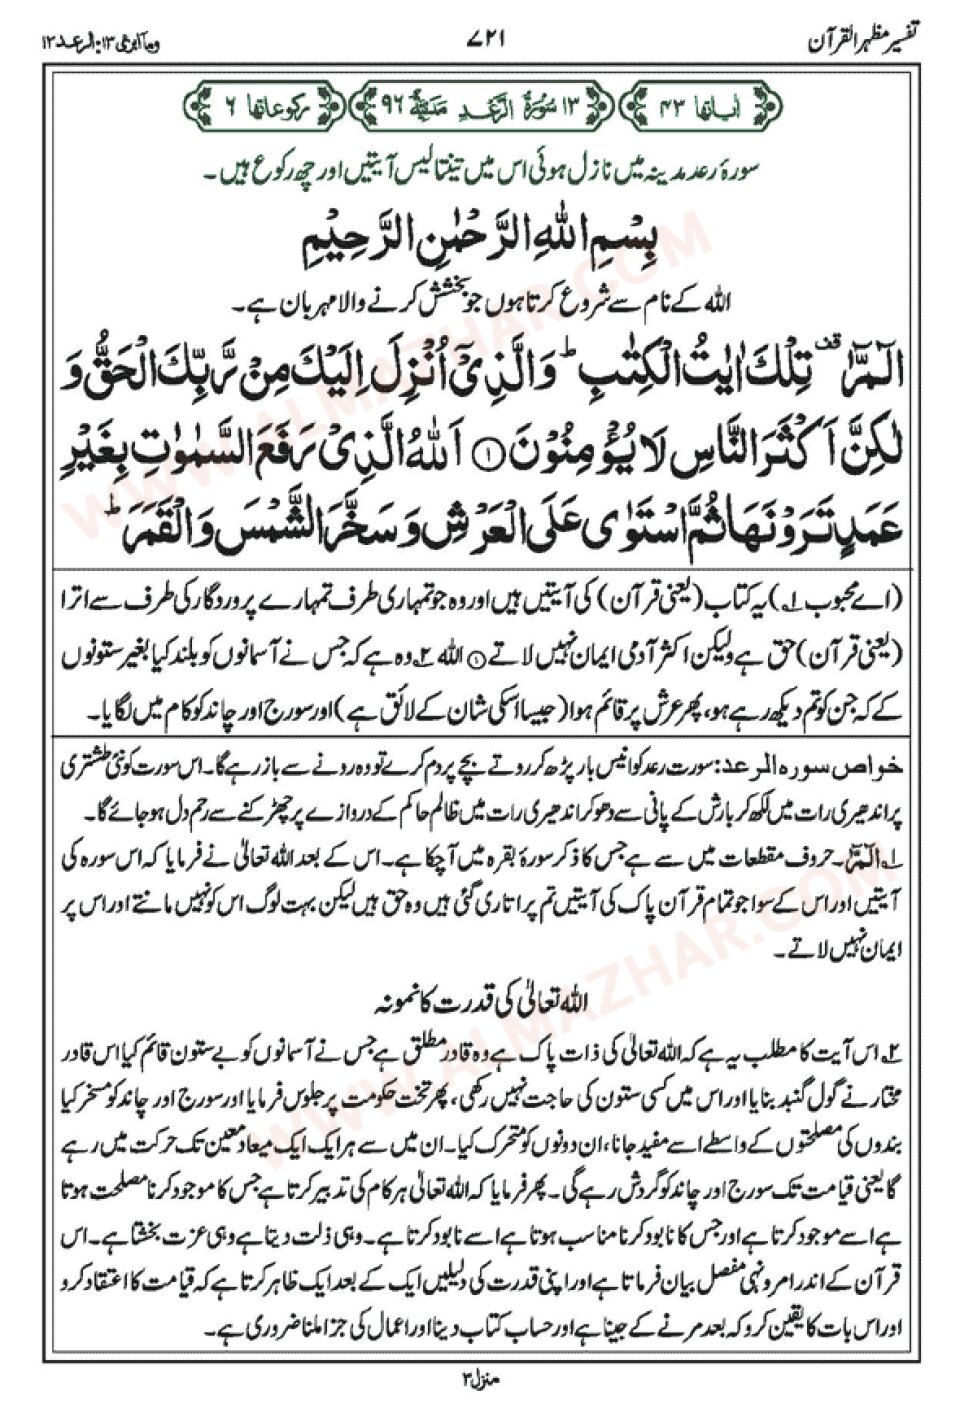 تفسیر مظہر القرآن
۷۲۱
وما ابرئ ۱۳: الرعد ۱۳
اٰیاتھا ۴۳
۱۳ سُوْرَۃُ الرَّعْدِ مَدَنِیَّۃٌ ۹۶
رکوعاتھا ۶
سورۂ رعد مدینہ میں نازل ہوئی اس میں تینتالیس آیتیں اور چھ رکوع ہیں۔
بِسْمِ اللّٰهِ الرَّحْمٰنِ الرَّحِيْمِ
اللہ کے نام سے شروع کرتا ہوں جو بخشش کرنے والا مہربان ہے۔
الٓمّٓرٰ ۫ تِلْكَ اٰيٰتُ الْكِتٰبِ ؕ وَالَّذِيْۤ اُنْزِلَ اِلَيْكَ مِنْ رَّبِّكَ الْحَقُّ وَ
لٰكِنَّ اَكْثَرَ النَّاسِ لَا يُؤْمِنُوْنَ ۱ اَللّٰهُ الَّذِيْ رَفَعَ السَّمٰوٰتِ بِغَيْرِ
عَمَدٍ تَرَوْنَهَا ثُمَّ اسْتَوٰى عَلَى الْعَرْشِ وَسَخَّرَ الشَّمْسَ وَالْقَمَرَ ؕ
(اے محبوب ۱) یہ کتاب (یعنی قرآن) کی آیتیں ہیں اور وہ جو تمہاری طرف تمہارے پروردگار کی طرف سے اترا
(یعنی قرآن) حق ہے ولیکن اکثر آدمی ایمان نہیں لاتے ۱ اللہ ۲ وہ ہے کہ جس نے آسمانوں کو بلند کیا بغیر ستونوں
کے کہ جن کو تم دیکھ رہے ہو، پھر عرش پر قائم ہوا (جیسا اسکی شان کے لائق ہے) اور سورج اور چاند کو کام میں لگایا۔
خواص سورہ الرعد: سورت رعد کو انیس بار پڑھ کر روتے بچے پر دم کرے تو وہ رونے سے باز رہے گا۔ اس سورت کو نئی طشتری
پر اندھیری رات میں لکھ کر بارش کے پانی سے دھو کر اندھیری رات میں ظالم حاکم کے دروازے پر چھڑکنے سے رحم دل ہو جائے گا۔
۱ الٓمّٓرٰ۔ حروف مقطعات میں سے ہے جس کا ذکر سورۂ بقرہ میں آچکا ہے۔ اس کے بعد اللہ تعالیٰ نے فرمایا کہ اس سورہ کی
آیتیں اور اس کے سوا جو تمام قرآن پاک کی آیتیں تم پر اتاری گئی ہیں وہ حق ہیں لیکن بہت لوگ اس کو نہیں مانتے اور اس پر
ایمان نہیں لاتے۔
اللہ تعالیٰ کی قدرت کا نمونہ
۲ اس آیت کا مطلب یہ ہے کہ اللہ تعالیٰ کی ذات پاک ہے وہ قادر مطلق ہے جس نے آسمانوں کو بے ستون قائم کیا اس قادر
مختار نے گول گنبد بنایا اور اس میں کسی ستون کی حاجت نہیں رکھی، پھر تخت حکومت پر جلوس فرمایا اور سورج اور چاند کو مسخر کیا
بندوں کی مصلحتوں کے واسطے اسے مفید جانا، ان دونوں کو متحرک کیا۔ ان میں سے ہر ایک ایک میعاد معین تک حرکت میں رہے
گا یعنی قیامت تک سورج اور چاند کو گردش رہے گی۔ پھر فرمایا کہ اللہ تعالیٰ ہر کام کی تدبیر کرتا ہے جس کا موجود کرنا مصلحت ہوتا
ہے اسے موجود کرتا ہے اور جس کا نابود کرنا مناسب ہوتا ہے اسے نابود کرتا ہے۔ وہی ذلت دیتا ہے وہی عزت بخشتا ہے۔ اس
قرآن کے اندر امر و نہی مفصل بیان فرماتا ہے اور اپنی قدرت کی دلیلیں ایک کے بعد ایک ظاہر کرتا ہے کہ قیامت کا اعتقاد کرو
اور اس بات کا یقین کرو کہ بعد مرنے کے جینا ہے اور حساب کتاب دینا اور اعمال کی جزا ملنا ضروری ہے۔
منزل ۳
WWW.ALMAZHAR.COM
WWW.ALMAZHAR.COM